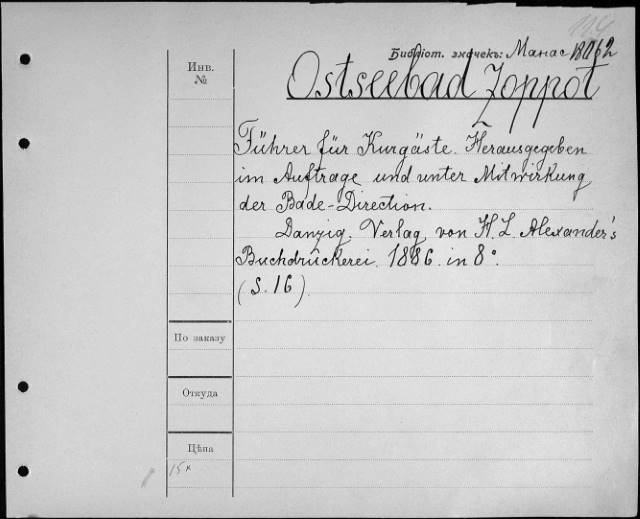 Библіот. значекъ: Манас
Инв.
№
Ostseebad Zoppot
Führer für Kurgäste. Herausgegeben
im Auftrage und unter Mitwirkung
der Bade-Direction.
Danzig. Verlag von H. L. Alexander's
Buchdrückerei. 1886. in 8°.
(S. 16).
По заказу
Откуда
Цѣна
15к